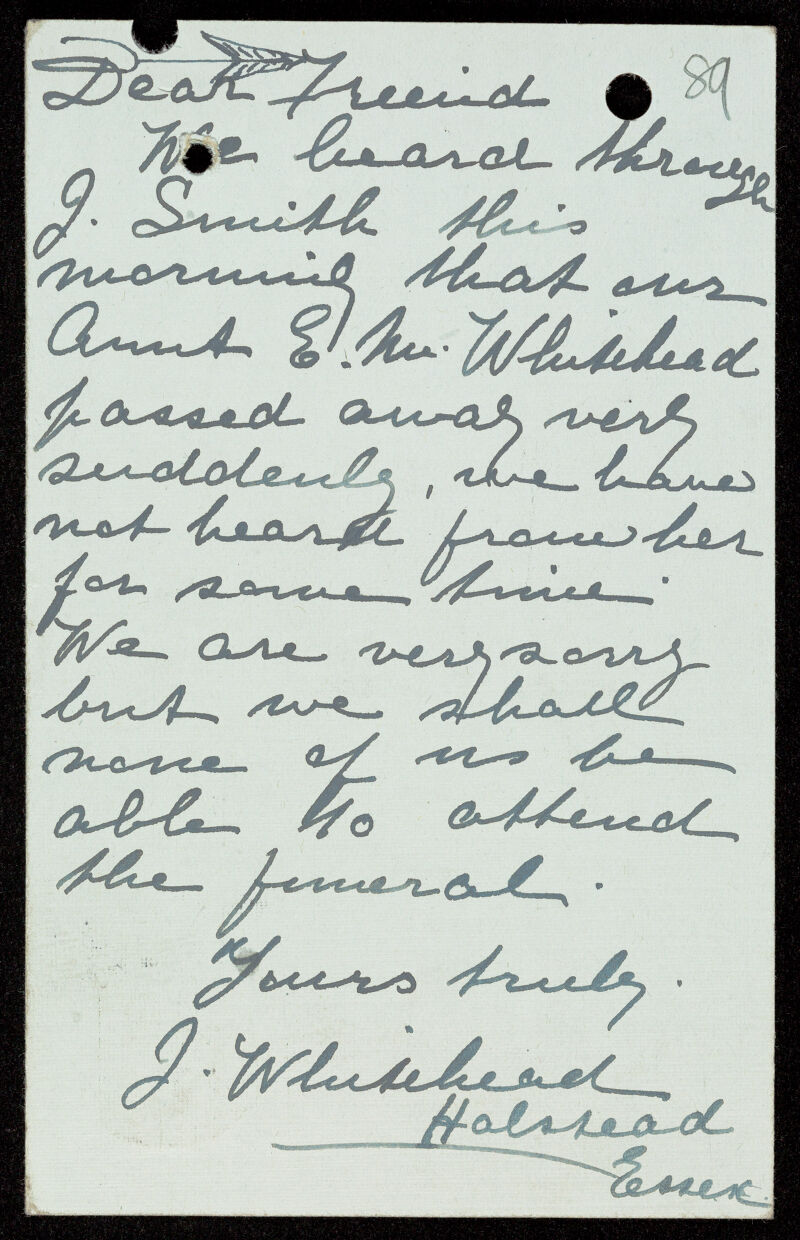 89
Dear Friend
We heard through
J. Smith this
morning that our
Aunt E. M. Whitehead
passed away very
suddenly, we have
not heard from her
for some time.
We are very sorry
but we shall
none of us be
able to attend
the funeral.
Yours truly.
J. Whitehead
Halstead
Essex.